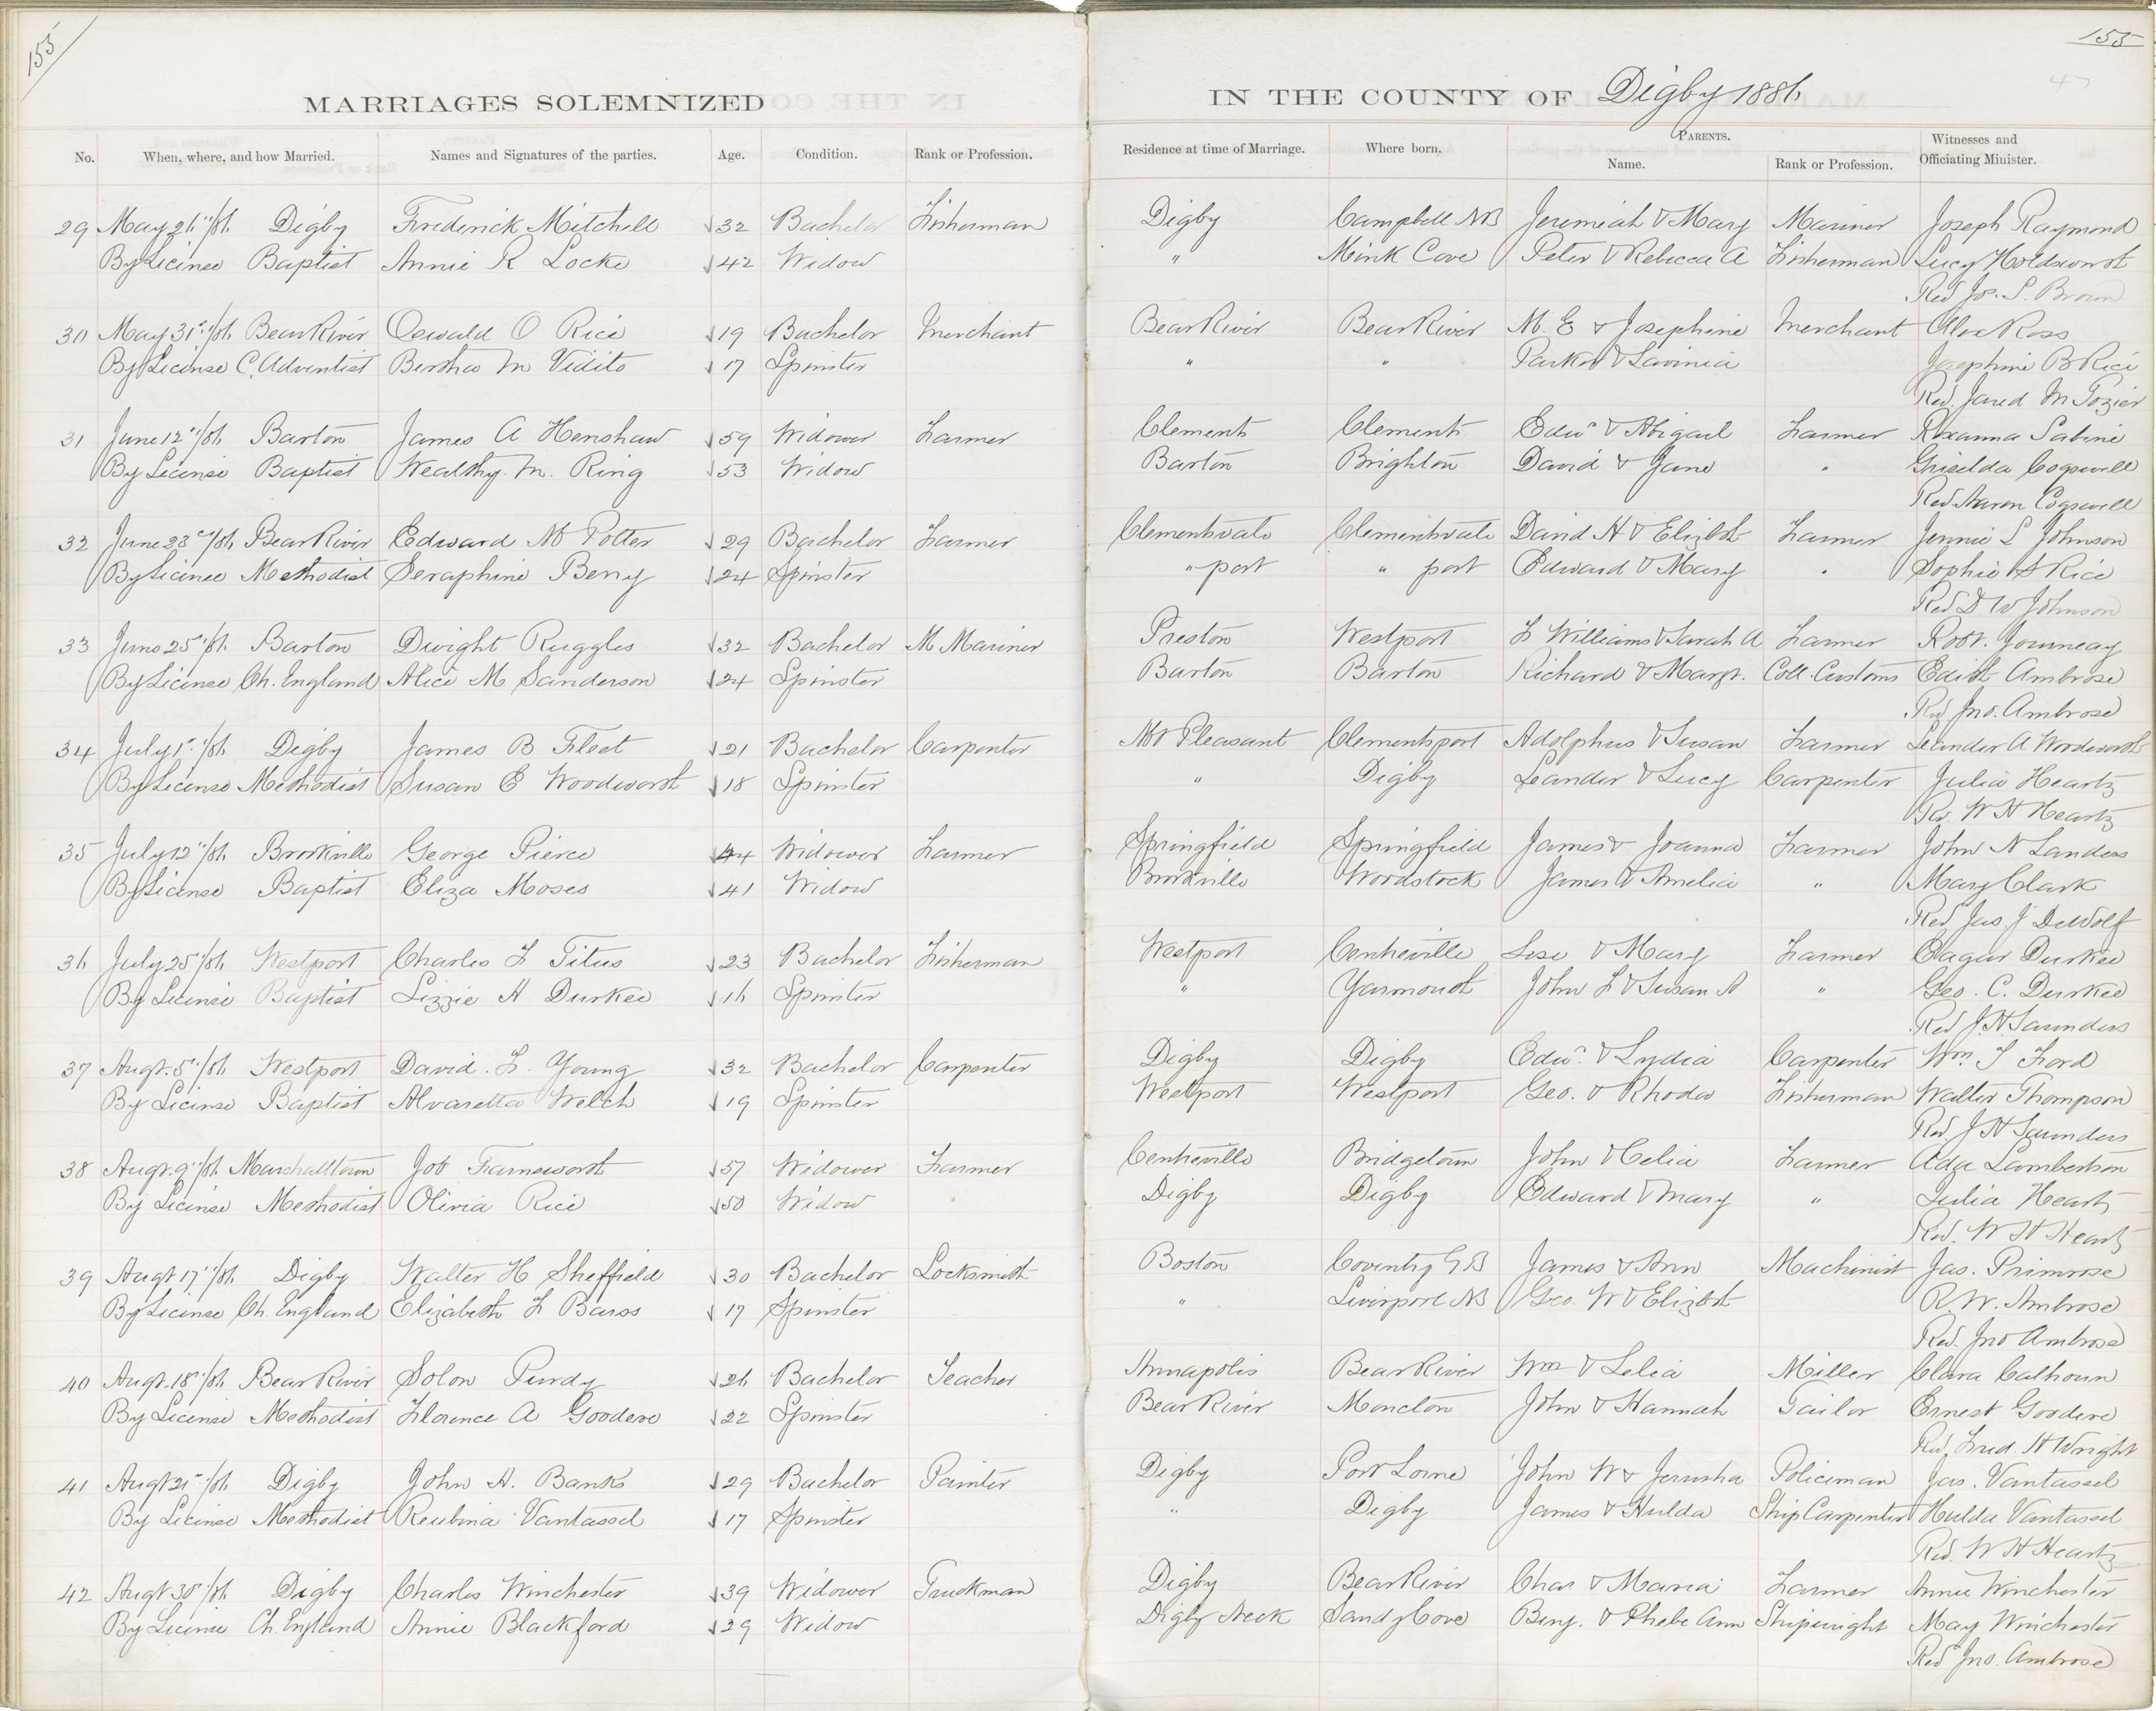 155
155
47
MARRIAGES SOLEMNIZED
IN THE COUNTY OF Digby 1886
No. When, where, and how Married. Names and Signatures of the parties. Age. Condition. Rank or Profession.
Residence at time of Marriage. Where born. PARENTS. Name. Rank or Profession. Witnesses and Officiating Minister.
29 May 26"/86 Digby Frederick Mitchell 32 Bachelor Fisherman Digby Campbell NB Jeremiah & Mary Mariner Joseph Raymond
By License Baptist Annie R Locke 42 Widow " Mink Cove Peter & Rebecca A Fisherman Lucy Holdsworth
Rev Jos. S. Brown
30 May 31"/86 Bear River Oswald O Rice 19 Bachelor Merchant Bear River Bear River M. E & Josephine Merchant Alex Ross
By License C. Adventist Bertha M Vidito 17 Spinster " " Parker & Lavinia Josephine B Rice
Rev. Jared M Tozier
31 June 12"/86 Barton James A Henshaw 59 Widower Farmer Clements Clements Edwd & Abigail Farmer Roxanna Sabine
By License Baptist Wealthy M. Ring 53 Widow Barton Brighton David & Jane " Griselda Cogswell
Rev. Aaron Cogswell
32 June 23d/86 Bear River Edward M Potter 29 Bachelor Farmer Clementsvale Clementsvale David H & Elizbth Farmer Jennie L Johnson
By License Methodist Seraphine Berry 24 Spinster " port " port Edward & Mary " Sophie H Rice
Rev D W Johnson
33 June 25"/86 Barton Dwight Ruggles 32 Bachelor M. Mariner Preston Westport F Williams & Sarah A Farmer Robt. Journeay
By License Ch. England Alice M Sanderson 24 Spinster Barton Barton Richard & Margt. Coll. Customs Edith Ambrose
Rev Jno. Ambrose
34 July 1st/86 Digby James B Fleet 21 Bachelor Carpenter Mt Pleasant Clementsport Adolphus & Susan Farmer Leander A Woodworth
By License Methodist Susan E Woodworth 18 Spinster " Digby Leander & Lucy Carpenter Julia Heartz
Rev. W H Heartz
35 July 12"/86 Brookville George Pierce 44 Widower Farmer Springfield Springfield James & Joanna Farmer John N Sanders
By License Baptist Eliza Moses 41 Widow Brookville Woodstock James & Amelia " Mary Clark
Rev Jas J DeWolf
36 July 25"/86 Westport Charles F Titus 23 Bachelor Fisherman Westport Centreville & Mary Farmer Durkee
By License Baptist Lizzie A Durkee 16 Spinster " Yarmouth John F & Susan A " Geo. C. Durkee
Rev J. H Saunders
37 Augt. 5"/86 Westport David. L. Young 32 Bachelor Carpenter Digby Digby Edwd. & Lydia Carpenter Wm. T Ford
By License Baptist Alvaretta Welch 19 Spinster Westport Westport Geo. & Rhoda Fisherman Walter Thompson
Rev. J H Saunders
38 Augt. 9"/86 Marshalltown Job Farnsworth 57 Widower Farmer Centreville Bridgetown John & Celia Farmer Ada Lambertson
By License Methodist Olivia Rice 50 Widow Digby Digby Edward & Mary " Julia Heartz
Rev. W H Heartz
39 Augt 17"/86 Digby Walter H Sheffield 30 Bachelor Locksmith Boston Coventry G.B James & Ann Machinist Jas. Primrose
By License Ch. England Elizabeth F Barss 17 Spinster " Liverpool NS Geo. W & Elizbth R. W. Ambrose
Rev. Jno Ambrose
40 Augt. 18"/86 Bear River Solon Purdy 26 Bachelor Teacher Annapolis Bear River Wm & Lelia Miller Clara Calhoun
By License Methodist Florence A Goodere 22 Spinster Bear River Moncton John & Hannah Tailor Ernest Goodere
Rev. Fred. H Wright
41 Augt 21st/86 Digby John A. Banks 29 Bachelor Painter Digby Port Lorne John W & Jerusha Policeman Jas. Vantassel
By License Methodist Reubina Vantassel 17 Spinster " Digby James & Hulda Ship Carpenter Hulda Vantassel
Rev. W H Heartz
42 Augt 30"/86 Digby Charles Winchester 39 Widower Truckman Digby Bear River Chas & Maria Farmer Annie Winchester
By License Ch. England Annie Blackford 29 Widow Digby Neck Sandy Cove Benj. & Phebe Ann Shipwright May Winchester
Rev Jno. Ambrose